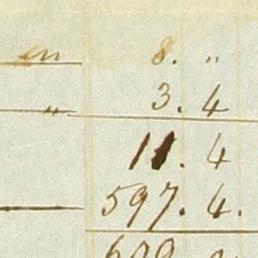 en 8. "
" 3. 4
11. 4
597. 4.